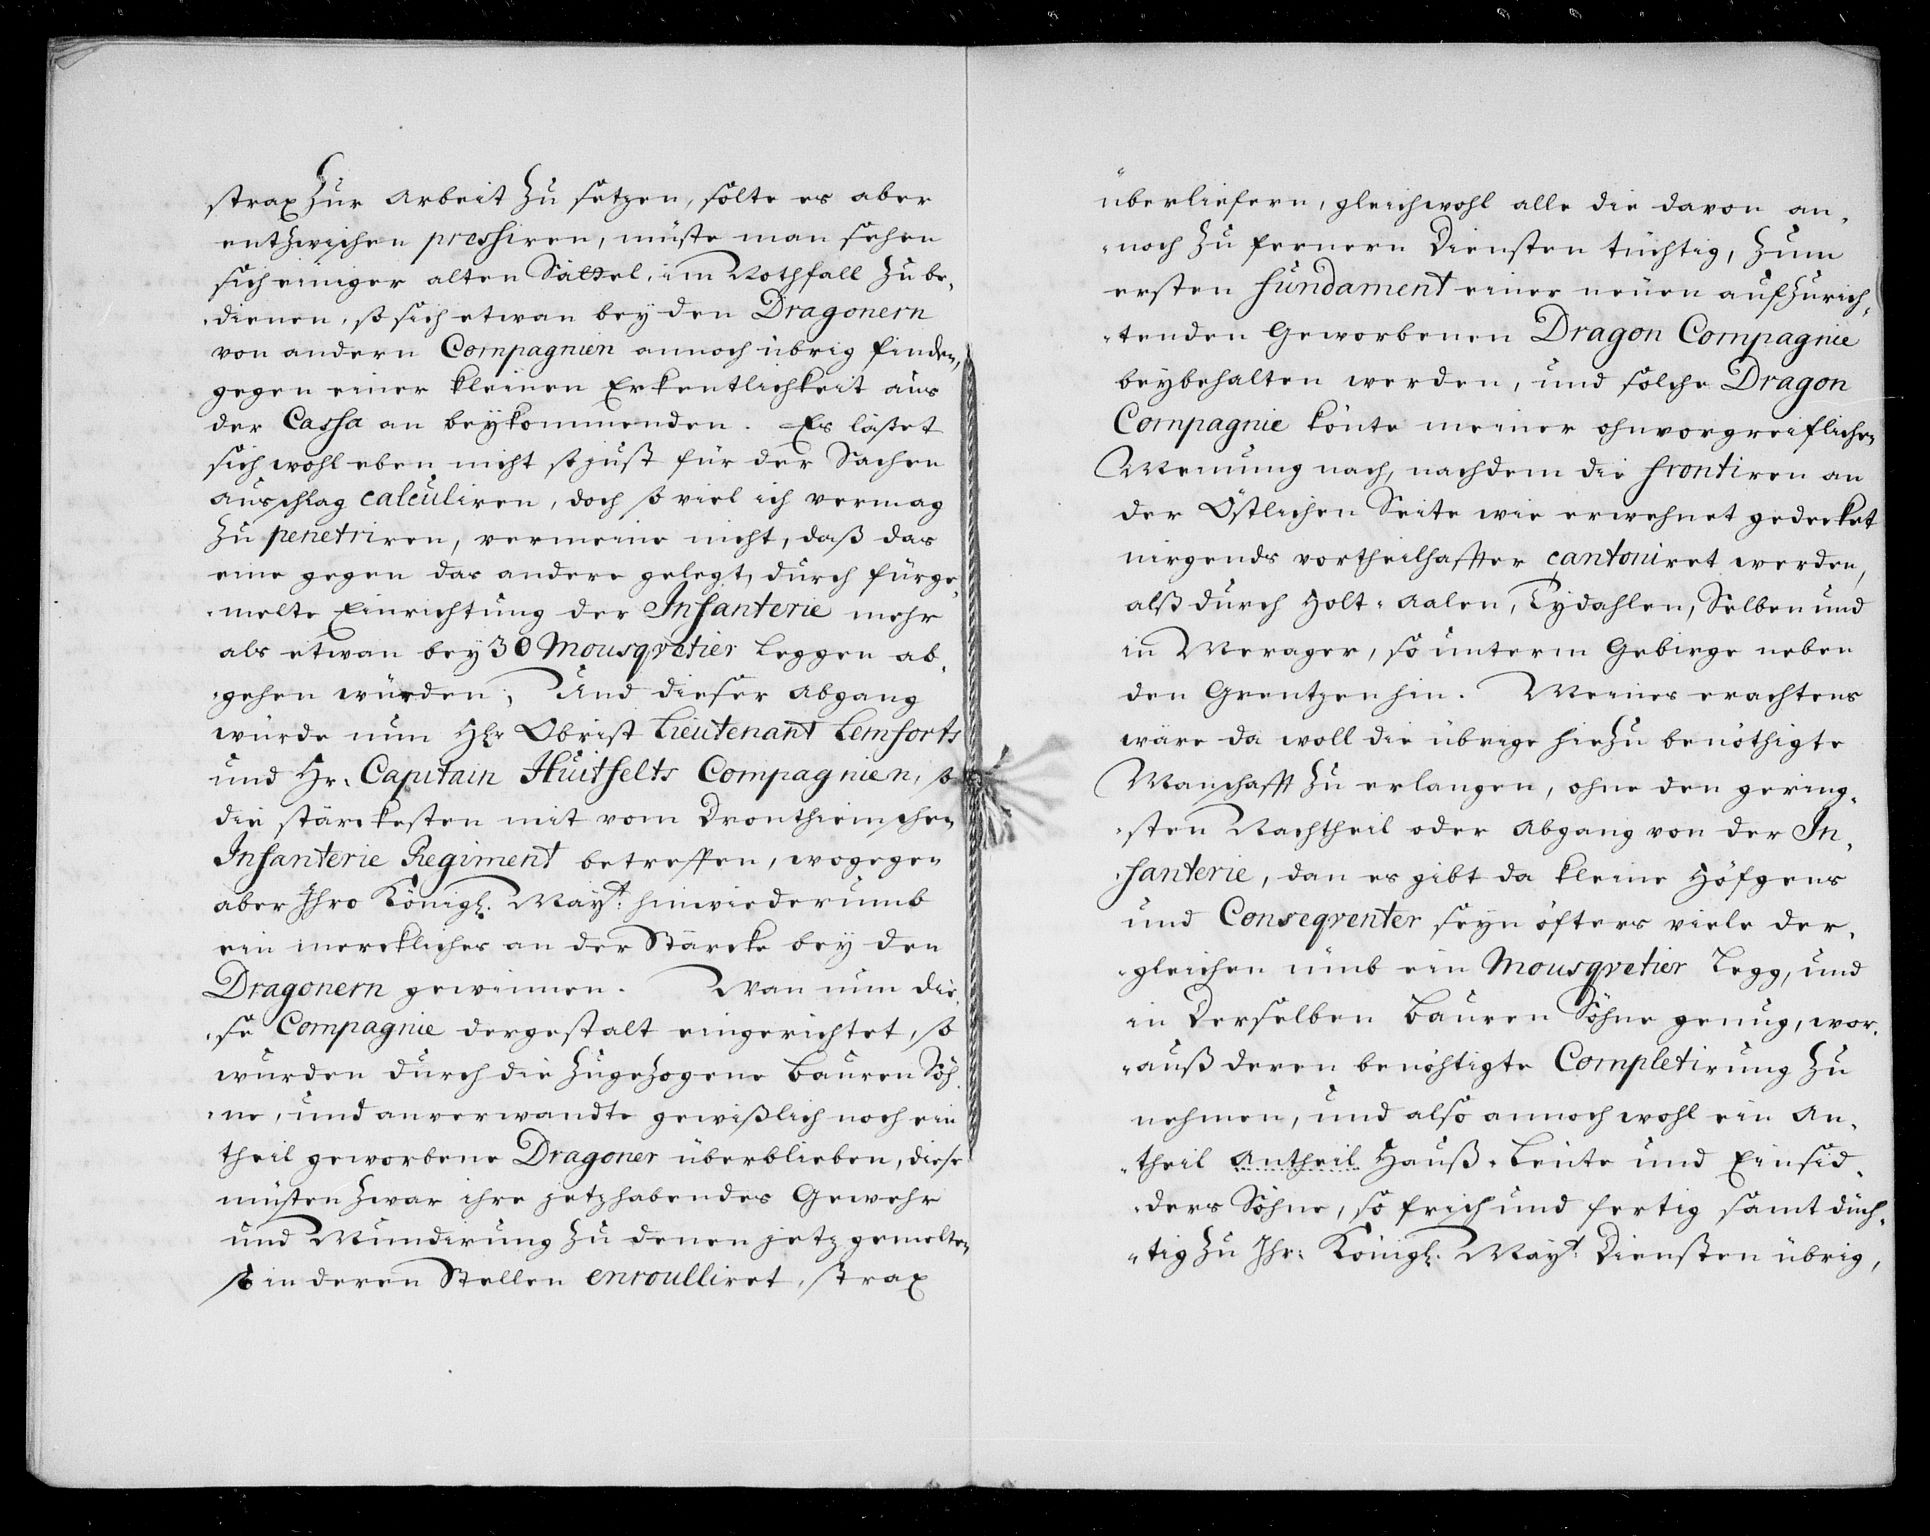 strax zur Arbeit zu setzen, solte es aber
entzwischen pressiren, müste man sehen
sich einiger alten Sattel, im Nothfall zu be„
„dienen, so sich etwan bey den Dragonern
von andern Compagnien annoch übrig finden,
gegen einer kleinen Erkentlichkeit aus
der Cassa an beykommenden. Es lästet
sich wohl eben nicht so just für der Sachen
ausschlag calculiren, doch so viel ich vermag
zu penetriren, vermeine nicht, daß das
eine gegen das andere gelegt, durch fürge„
„melte Einrichtung der Infanterie mehr
als etwan bey 30 Mousqvetier Leggen ab„
„gehen würden; Und dieser Abgang
würde nun Hhr Obrist Lieutenant Lemforts
und Hr. Capitain Huitfelts Compagnien, so
die stärckesten mit vom Drontheimschen
Infanterie Regiment betreffen, wogegen
aber Ihro Königl. Mayt. hinwiederumb
ein merckliches an der Stärcke bey den
Dragonern gewinnen. Wan nun die„
„se Compagnie dergestalt eingerichtet, so
wurden durch die zugezogene Bauren Söh„
„ne, und anverwandte gewißlich noch ein
theil geworbene Dragoner überblieben, diese
müsten zwar ihre jetz habendes Gewehr
und Mundirung zu denen jetz gemelten
so in deren Stellen enroulliret, strax
überliefern, gleichwohl alle die davon an„
„noch zu fernern Diensten tüchtig, zum
ersten fundament einer neüen aufzurich„
„tenden Geworbenen Dragon Compagnie
beybehalten werden, und solche Dragon
Compagnie könte meiner ohnvorgreiflichen
Meinung nach, nachdem die frontiren an
der Östlichen Seite wie erwehnet gedecket
nirgends vortheilhaffter cantoniret werden,
alß durch Holt-Aalen, Tydahlen, Selben und
in Merager, so unterm Gebirge neben
den Grentzen hin. Meines erachtens
wäre da woll die übrige hiezu benöthigte
Manschafft zu erlangen, ohne den gering„
„sten Nachtheil oder Abgang von der In„
„fanterie, dan es gibt da kleine Höfgens
und Conseqventer seyn öfters viele der„
„gleichen umb ein Mousqvetier Legg, und
in Derselben Bauren Söhne genug, wor„
„auß deren benöhtigte Completirung zu
nehmen, und also annoch wohl ein An„
„theil Antheil Hauß-Leute und Einsid„
„ders Söhne, so frisch und fertig samt düch„
„tig zu Ihr: Königl. Mayt: Diensten übrig,